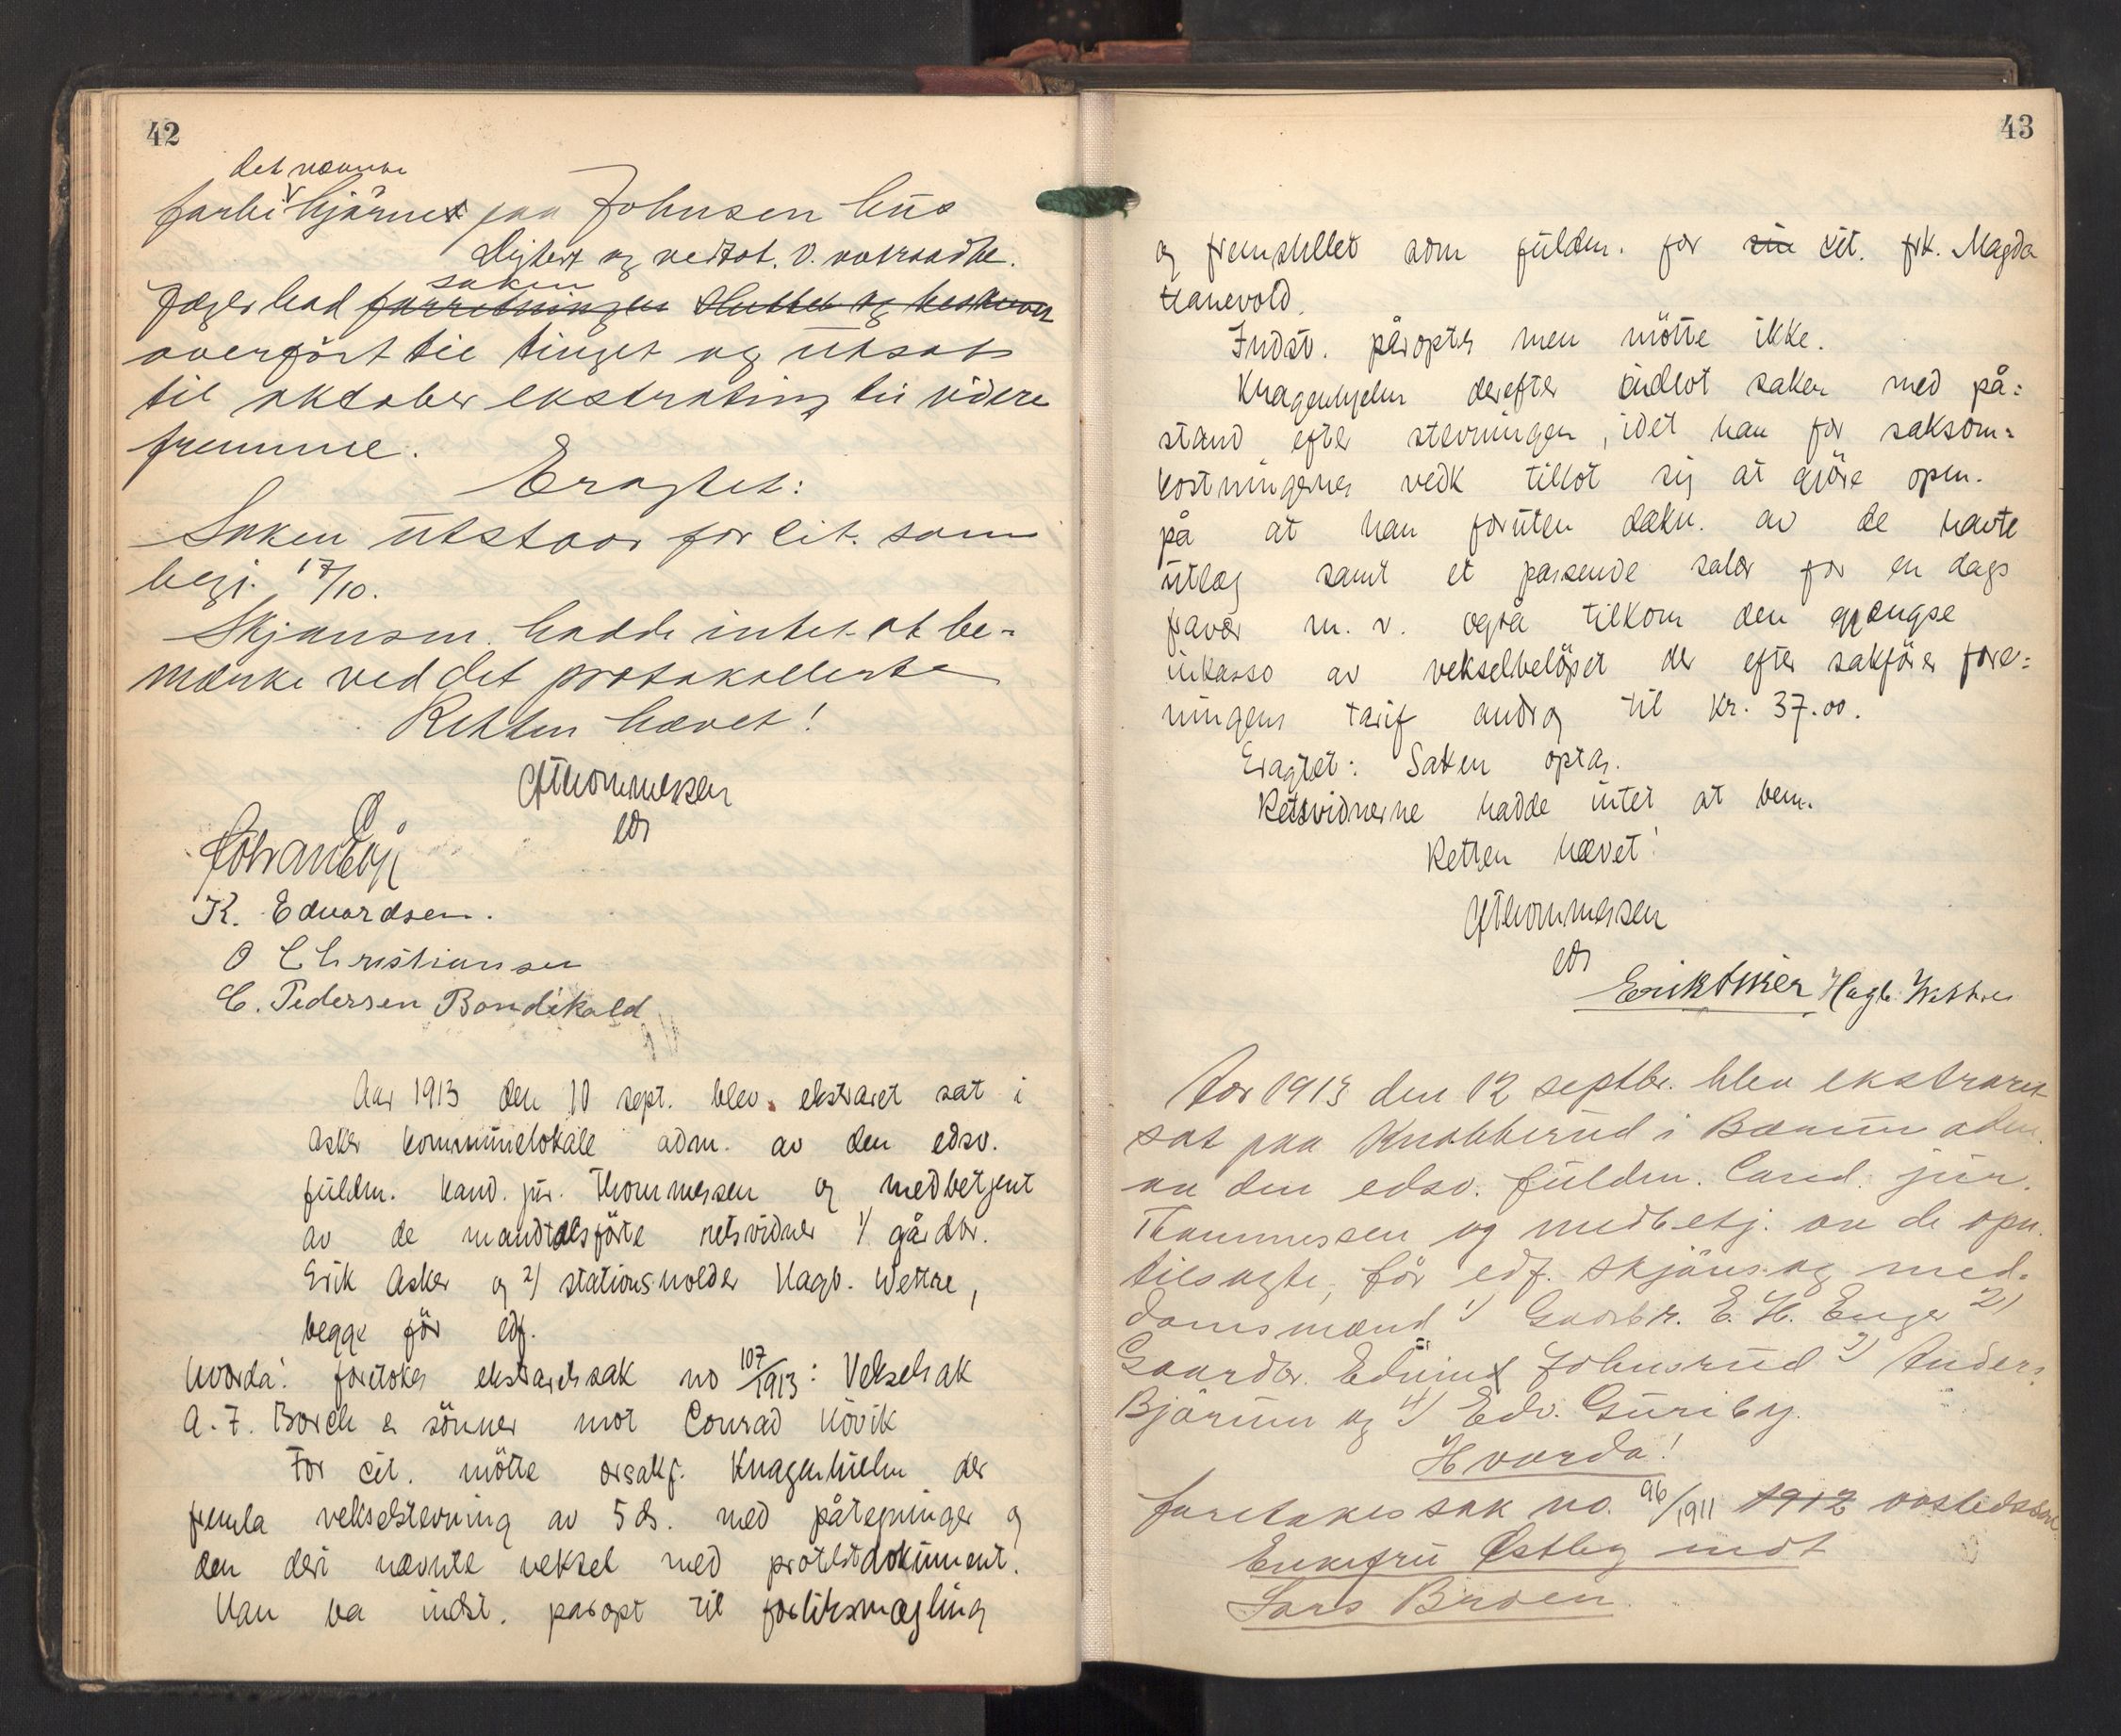 42
det nævnte
forbi hjörnet paa Johnsen hus
Dighert og vedtat. V. votraadte.
saken
Jæger bad forretningen sluttet og hævet
overfört til tinget og utsat
til oktober ekstrating til videre
fremme.
Eragtet:
Saken utstaar for cit. som
begj. 17/10.
Skjönsm. hadde intet at be-
mærke ved det protokollerte
Retten hævet!
CfThommessen
edf
K. Edvardsen.
O Christiansen
C. Pedersen Bondikold
Aar 1913 den 10 sept. blev ekstraret sat i
Asker kommunelokale adm. av den edsv.
fuldm. kand. jur. Thommessen og medbetjent
av de mandtalsförte retsvidner 1/ gårdbr.
Erik Asker og 2) stationsholder Hagb. Wettre,
begge för edf.
Hvorda: foretokes ekstraretssak no 107/1913: Vekselsak
A. F. Borch & sönner mot Conrad Hövik
For cit. mötte orsakf. Knagenhjelm der
fremla vekselstevning av 5 ds. med påtegninger og
den deri nævnte veksel med protestdokument.
Han va indst. paropt til forliksmægling
43
og fremstillet som fuldm. for sin cit. frk. Magda
Hanevold.
Indst. påroptes men mötte ikke.
Knagenhjelm derefter indlot saken med på=
stand efter stevningen, idet han for saksom=
kostningernes vedk tillot sig at gjöre opm.
på at han foruten dækn. av de havte
utlæg samt et passende salær for en dags
fravær m. v. også tilkom den gjængse
inkasso av vekselbelöpet der efter sakförer fore=
ningens tarif andrag til kr. 37.00.
Eragtet: Saken optas.
Retsvidnerne hadde intet at bem.
Retten hævet!
CfThommessen
edf
Erik Asker Hagb. Wettre
Aar 1913 den 12 septbr. blev ekstraret
sat paa Knabberud i Bærum adm.
av den edsv. fuldm. Cand. jur.
Thommessen og medbetj. av de opn.
tilsagte, för edf. skjöns og med-
domsmænd 1) Gaardbr. E. H. Enger 2)
Gaardbr. Edvind Johnsrud 3) Anders
Bjørum og 4) Edv. Guriby.
Hvorda!
foretokes sak no. 96/1911 1912 aastedssak
Enkefru Østby mot
Lars Braen.